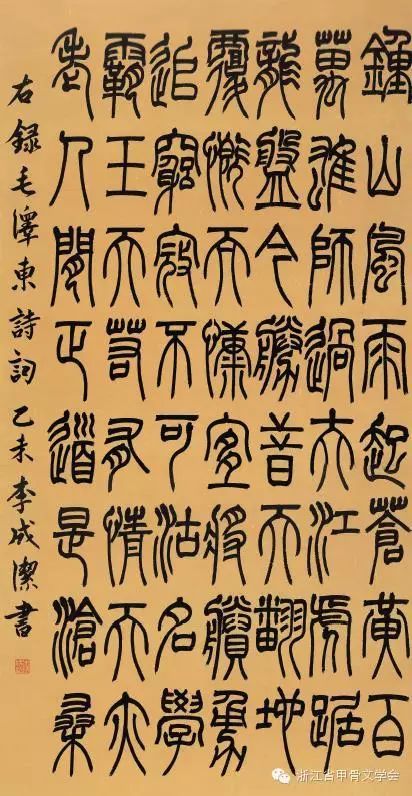 鍾山風雨起蒼黃百
萬雄師過大江虎踞
龍盤今勝昔天翻地
覆慨而慷宜將賸勇
追窮寇不可沽名學
霸王天若有情天亦
老人間正道是滄桑
右錄毛澤東詩詞 乙未李成潔書
浙江省甲骨文学会